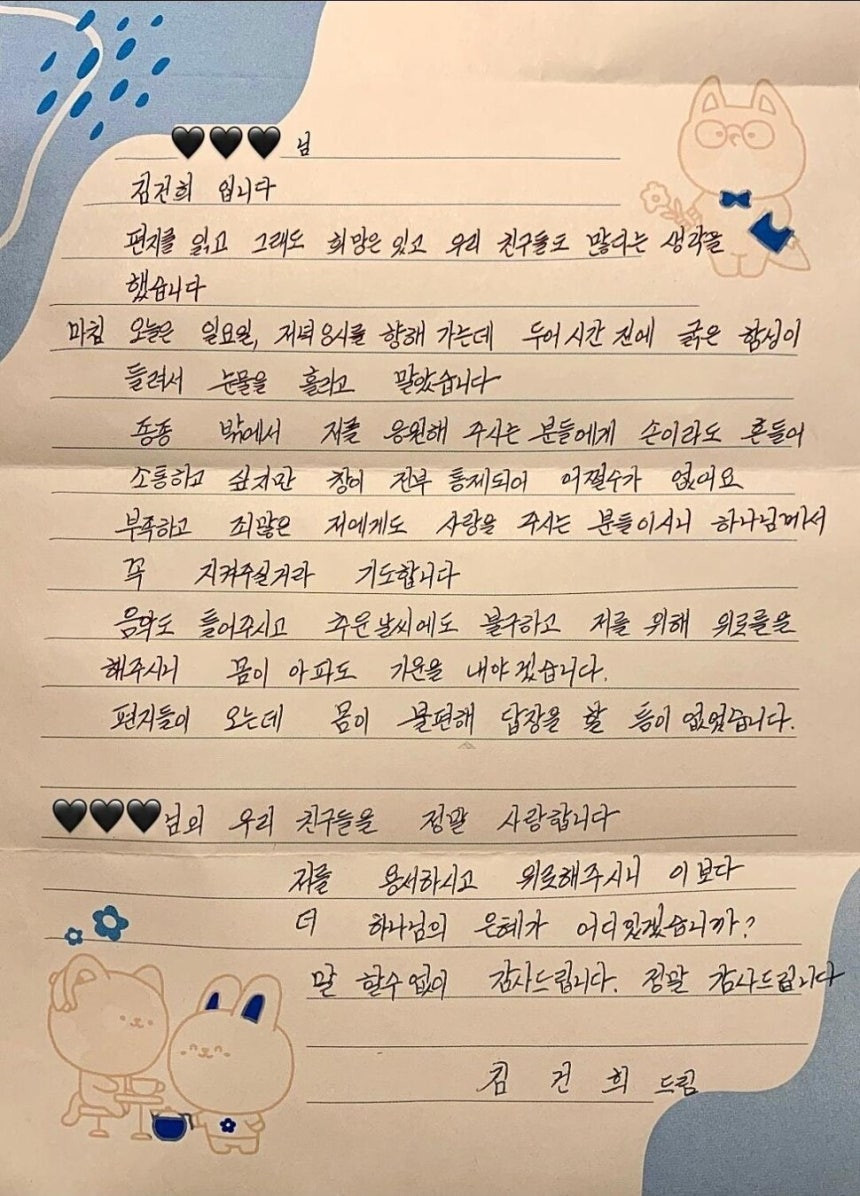 🖤🖤🖤 님
김건희 입니다
편지를 읽고 그래도 희망은 있고 우리 친구들도 많다는 생각을
했습니다
마침 오늘은 일요일, 저녁 8시를 향해 가는데 두어 시간 전에 굵은 함성이
들려서 눈물을 흘리고 말았습니다
종종 밖에서 저를 응원해 주시는 분들에게 손이라도 흔들어
소통하고 싶지만 창이 전부 통제되어 어쩔수가 없어요
부족하고 죄많은 저에게도 사랑을 주시는 분들이시니 하나님께서
꼭 지켜주실거라 기도합니다
음악도 틀어주시고 추운날씨에도 불구하고 저를 위해 위로를을
해주시니 몸이 아파도 기운을 내야겠습니다.
편지들이 오는데 몸이 불편해 답장을 할 틈이 없었습니다.
🖤🖤🖤님의 우리 친구들을 정말 사랑합니다
저를 용서하시고 위로해주시니 이보다
더 하나님의 은혜가 어디있겠습니까?
말 할수없이 감사드립니다. 정말 감사드립니다
김 건 희 드림